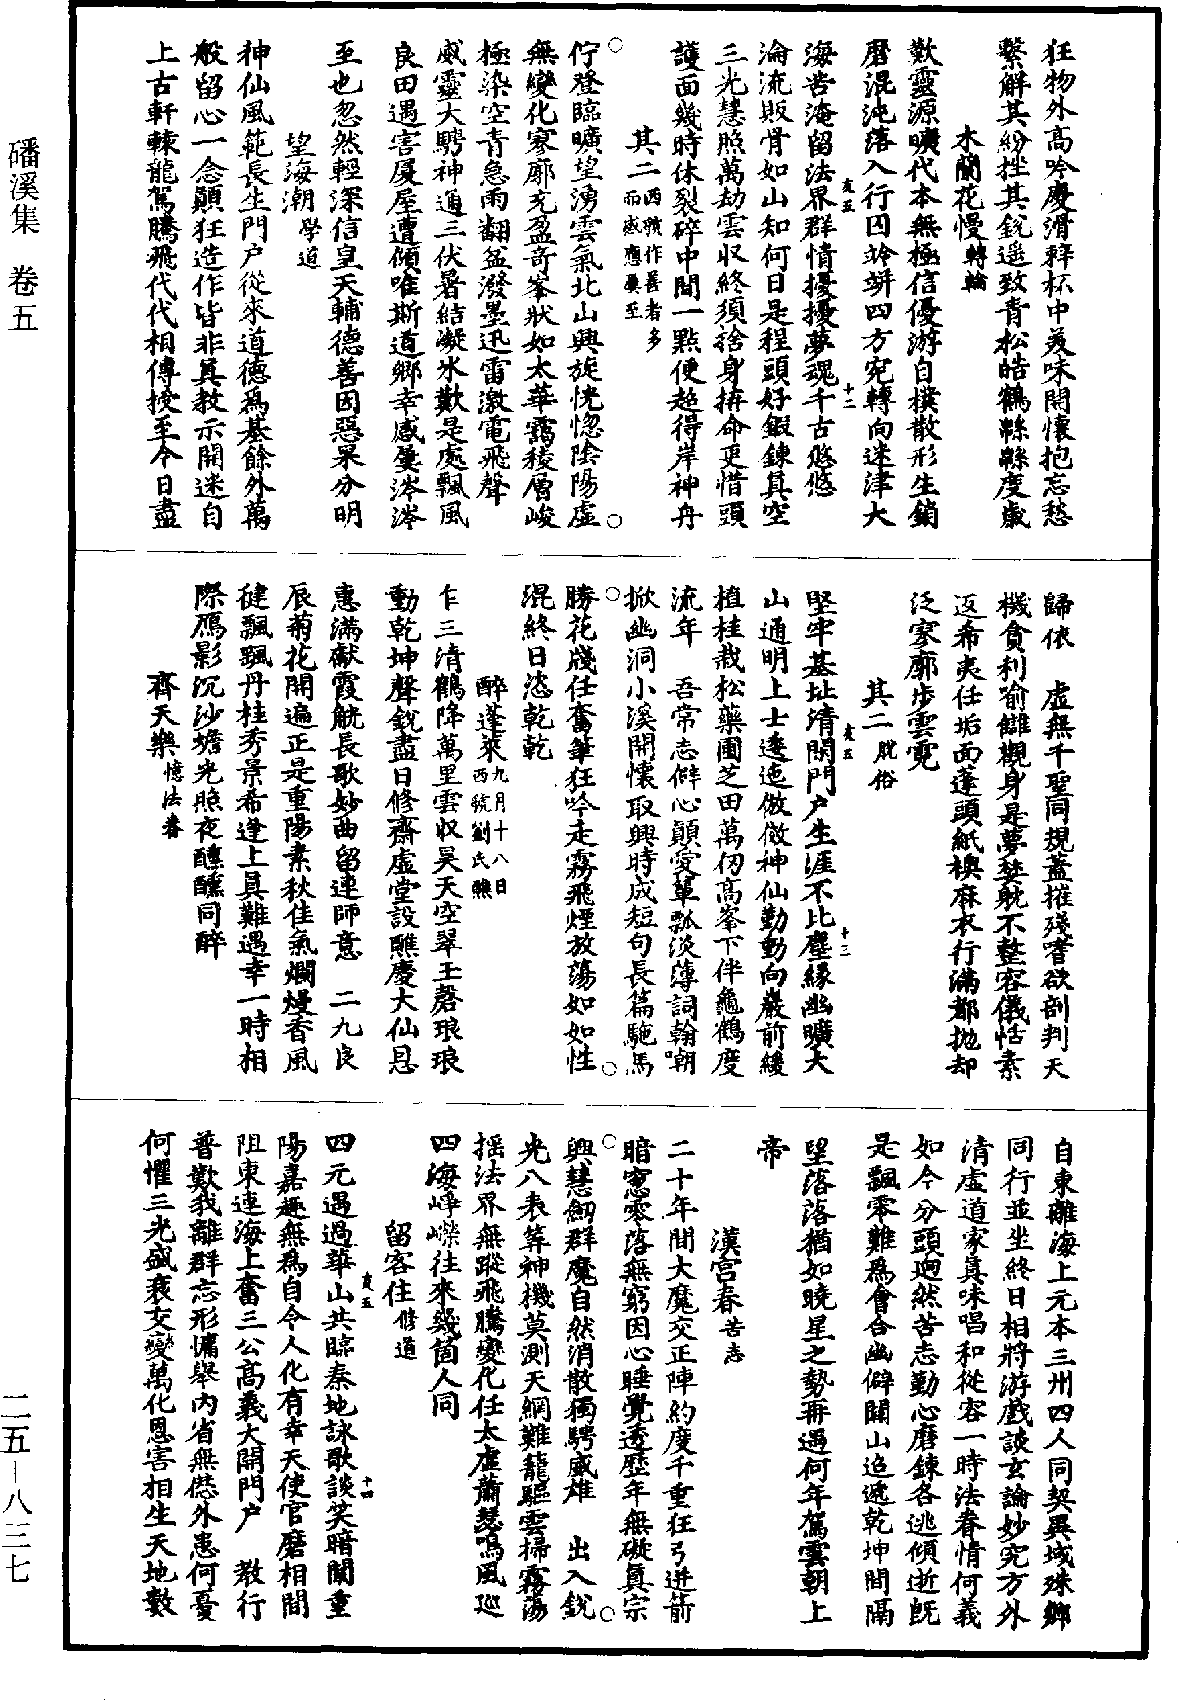 狂物外高吟慶滑辞杯中美味開懷抱忘愁
繫解其紛挫其銳遥致青松皓鶴緜緜度歲
木蘭花慢 轉輪
歎靈源曠代本無極信優游自樸散形生銷
磨混沌落入行囚竛竮四方宛轉向迷津大
海沓淹留法界群情擾擾夢魂千古悠悠
友五 十二
淪流販骨如山知何日是程頭好鍛鍊真空
三光慧照萬劫雲収終須捨身拚命更惜頭
護面幾時休裂碎中間一點便超得岸神舟
其二 西虢作善者多而感應奧至
佇登臨曠望湧雲氣北山興旋恍惚陰陽虛
無變化寥廓充盈奇峯狀如太華靄稜層峻
極染空青急雨翻盆潑墨迅雷激電飛聲
威靈大騁神通三伏暑結凝氷歎是處飄風
良田遇害厦屋遭傾唯斯道鄉幸感曼涔涔
至也忽然輕深信皇天輔德善因惡果分明
望海潮 學道
神仙風範長生門户從來道德爲基餘外萬
般留心一念顛狂造作皆非真教示開迷自
上古軒轅龍駕騰飛代代相傳授至今日盡
歸依 虛無千聖同規蓋摧殘嗜欲剖判天
機貪利喻讎觀身是夢塋軀不整容儀恬素
返希夷任垢面蓬頭紙襖麻衣行滿都拋却
泛寥廓步雲霓
其二 脫俗
友五 十三
堅牢基址清閑門户生涯不比塵緣幽曠大
山通明上士逶迤倣傚神仙勤動向巖前緩
植桂栽松藥圃芝田萬仞高峯下伴龜鶴度
流年 吾常志僻心顛愛單瓢淡薄詞翰嘲
掀幽洞小溪開懷取興時成短句長篇馳馬
勝花牋任奮筆狂吟走霧飛煙放蕩如如性
混終日恣乾乾
醉蓬萊 九月十八日西虢劉氏醮
乍三清鶴降萬里雲収昊天空翠玉磬琅琅
動乾坤聲銳盡日修齋虛堂設醮慶大仙恩
惠滿獻霞觥長歌妙曲留連師意 二九良
辰菊花開遍正是重陽素秋佳氣爛熳香風
健飄飄丹桂秀景希逢上真難遇幸一時相
際鴈影沉沙蟾光照夜醺醺同醉
齊天樂 憶法眷
自東離海上元本三州四人同契異域殊鄉
同行並坐終日相將游戲談玄論妙究方外
清虛道家真味唱和從容一時法眷情何義
如今分頭迥然苦志勤心磨鍊各逃傾逝既
是飄零難爲會合幽僻關山迢遞乾坤間隔
望落落猶如曉星之勢再遇何年駕雲朝上
帝
漢宮春 苦志
二十年間大魔交正陣約度千重狂弓迸箭
暗窓零落無窮因心睡覺透歷年無礙真宗
興慧劒群魔自然消散獨騁威雄 出入銳
光八表筭神機莫測天網難籠驅雲掃霧蕩
揺法界無蹤飛騰變化任太虛蕭瑟鳴風巡
四海崢嶸往來幾箇人同
留客住 修道
友五 十四
四元遇過華山共臨秦地詠歌談笑暗闌重
陽嘉趣無爲自令人化有幸天使官磨相間
阻東連海上奮三公高義大開門户 教行
普歎我離群忘形慵舉內省無愆外患何憂
何懼三光盛衰交變萬化恩害相生天地數
磻溪集 卷五
二五－八三七